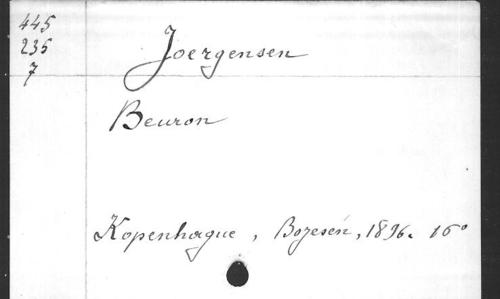 445
235
7
Joergensen
Beuron
Kopenhague, Bojesén, 1896. 16°